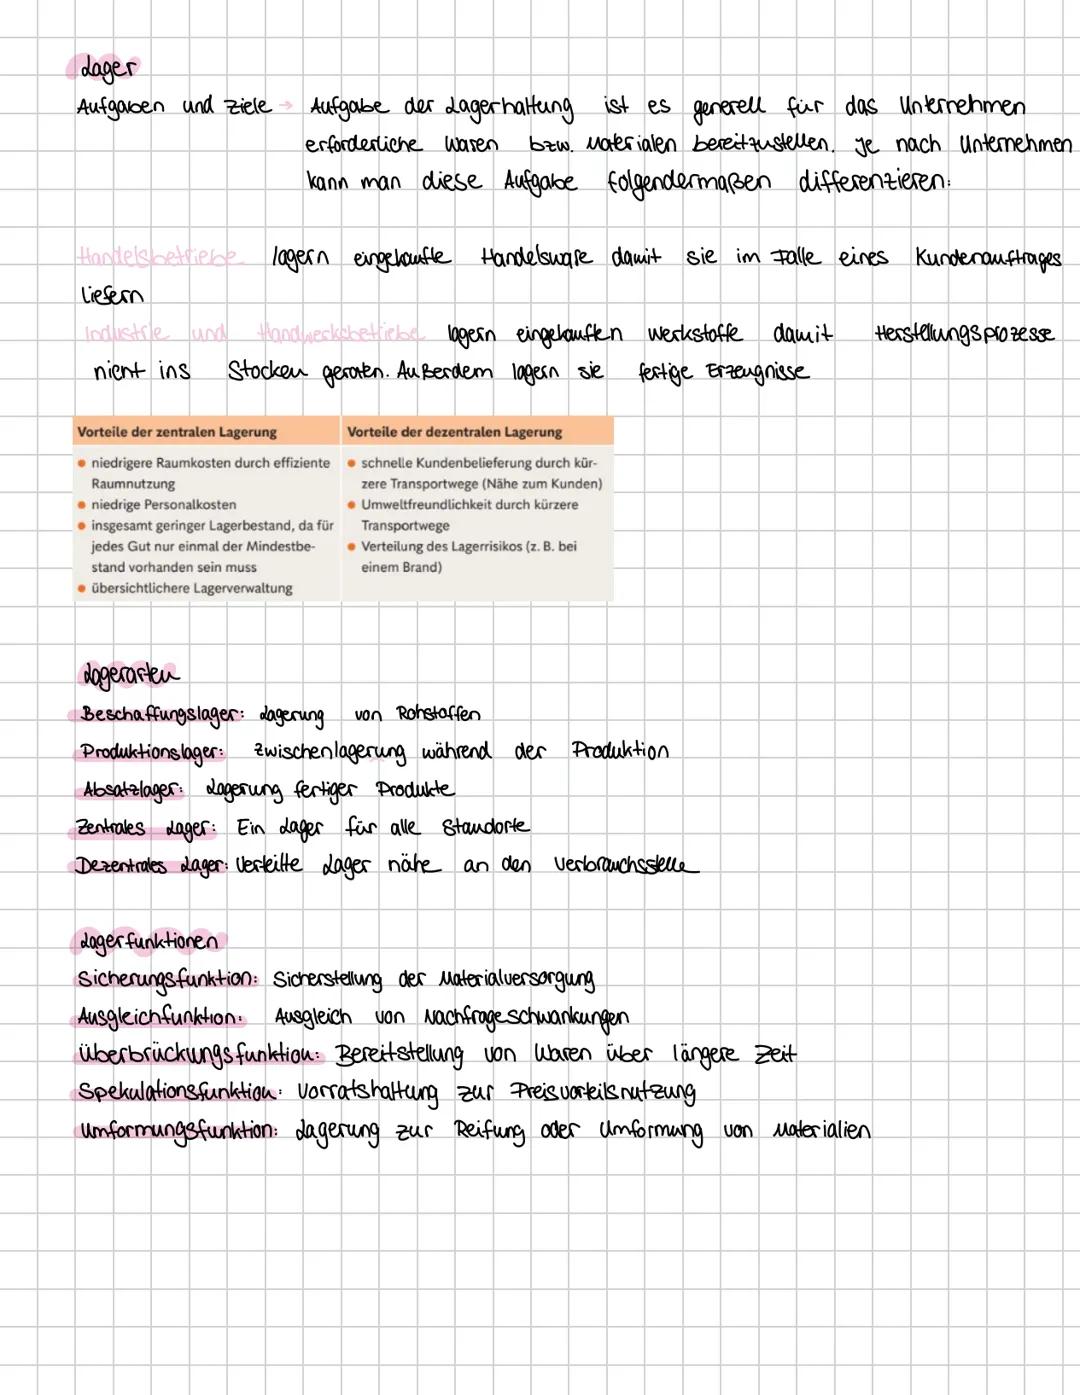 Lager
Aufgaben und Ziele → Aufgabe der Lagerhaltung ist es generell für das Unternehmen
erforderliche Waren bzw. Materialen bereitzustellen. Je nach Unternehmen
kann man diese Aufgabe folgendermaßen differenzieren:
Handelsbetriebe lagern eingekaufte Handelsware damit sie im Falle eines Kundenauftrages
liefern
Industrie und Handwerksbetiebe lagern eingekauften Werkstoffe damit Herstellungsprozesse
nicht ins Stocken geraten. Außerdem lagern sie fertige Erzeugnisse
Vorteile der zentralen Lagerung
• niedrigere Raumkosten durch effiziente
Raumnutzung
• niedrige Personalkosten
• insgesamt geringer Lagerbestand, da für
jedes Gut nur einmal der Mindestbe-
stand vorhanden sein muss
• übersichtlichere Lagerverwaltung
Vorteile der dezentralen Lagerung
• schnelle Kundenbelieferung durch kür-
zere Transportwege (Nähe zum Kunden)
• Umweltfreundlichkeit durch kürzere
Transportwege
• Verteilung des Lagerrisikos (z. B. bei
einem Brand)
Lagerarten
Beschaffungslager: Lagerung von Rohstoffen
Produktionslager: Zwischenlagerung während der Produktion
Absatzlager: Lagerung fertiger Produkte
Zentrales Lager: Ein Lager für alle Standorte
Dezentrales Lager: Verteilte Lager nähe an den Verbrauchsstelle
Lagerfunktionen
Sicherungsfunktion: Sicherstellung der Materialversorgung
Ausgleichfunktion: Ausgleich von Nachfrageschwankungen
Überbrückungsfunktion: Bereitstellung von Waren über längere Zeit
Spekulationsfunktion: Vorratshaltung zur Preisvorteilsnutzung
Umformungsfunktion: Lagerung zur Reifung oder Umformung von Materialien